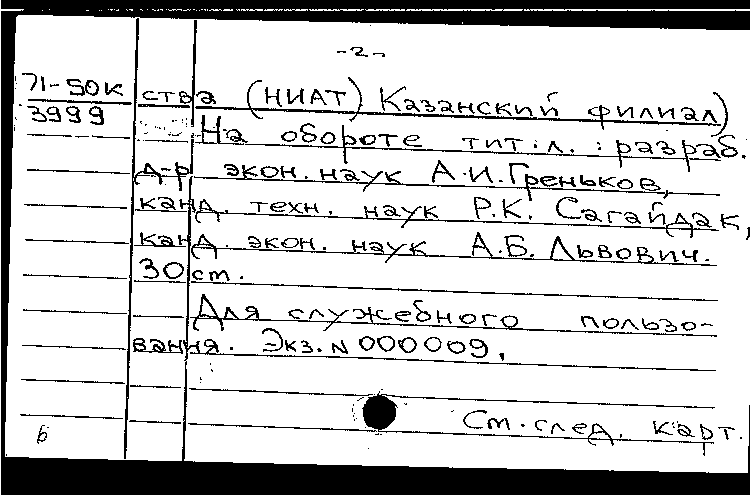 -2-
71-50к ства (НИАТ) Казанский филиал)
3999
На обороте тит.л. : разраб.
д-р экон. наук А.И.Греньков,
канд. техн. наук Р.К. Сагайдак,
канд. экон. наук А.Б. Львович.
30 ст.
Для служебного пользо-
вания. Экз. N 000009.
См. след. карт.
б